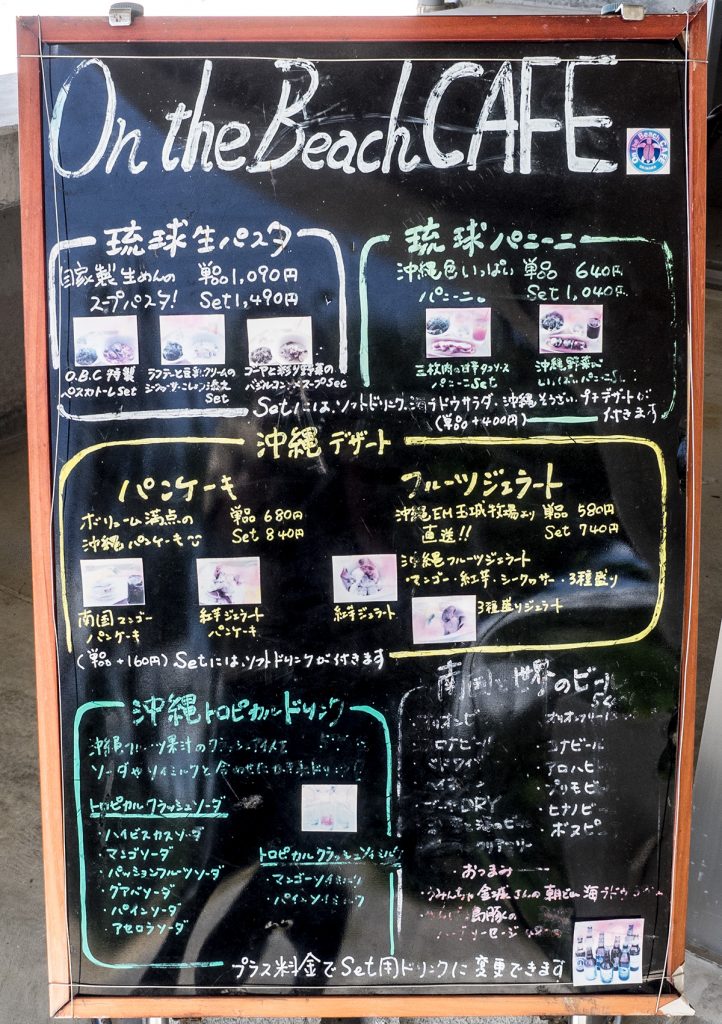 On the Beach CAFE
琉球生パスタ
自家製生めんの 単品1,090円
スープパスタ! Set1,490円
O.B.C特製
ペスカトーレSet
ラフテーと豆乳クリームの
シークヮーサーこしょう添え
Set
ゴーヤと彩り野菜の
スープSet
琉球パニーニ
沖縄色いっぱい 単品 640円
パニーニ。 Set1,040円
三枚肉の甘辛タコソース
パニーニSet
沖縄野菜
いっぱいパニーニ
Setには、ソフトドリンク、海ブドウサラダ、沖縄そうざい、プチデザートが
(単品+400円) 付きます
沖縄デザート
パンケーキ
ボリューム満点の 単品 680円
沖縄パンケーキ Set 840円
南国マンゴー
パンケーキ
紅芋ジェラート
パンケーキ
フルーツジェラート
沖縄EM玉城牧場より 単品 580円
直送!! Set 740円
沖縄フルーツジェラート
・マンゴー・紅芋・シークヮサー・3種盛り
紅芋ジェラート
3種盛りジェラート
(単品+160円) Setには、ソフトドリンクが付きます
沖縄トロピカルドリンク
沖縄フルーツ果汁のクラッシュアイスを
ソーダやソイミルクと合わせた
トロピカルクラッシュソーダ
・ハイビスカスソーダ
・マンゴソーダ
・パッションフルーツソーダ
・グアバソーダ
・パインソーダ
・アセロラソーダ
トロピカルクラッシュソイミルク
・マンゴーソイミルク
・パインソイミルク
南国と世界のビール
DRY
・コナビール
・アロハビ
・プリモビ
・ヒナノビー
・ボスビ
・おつまみー
・うみんちゅ金城さんの朝どれ海ブドウ
島豚の
ソーセージ
プラス料金でSet用ドリンクに変更できます